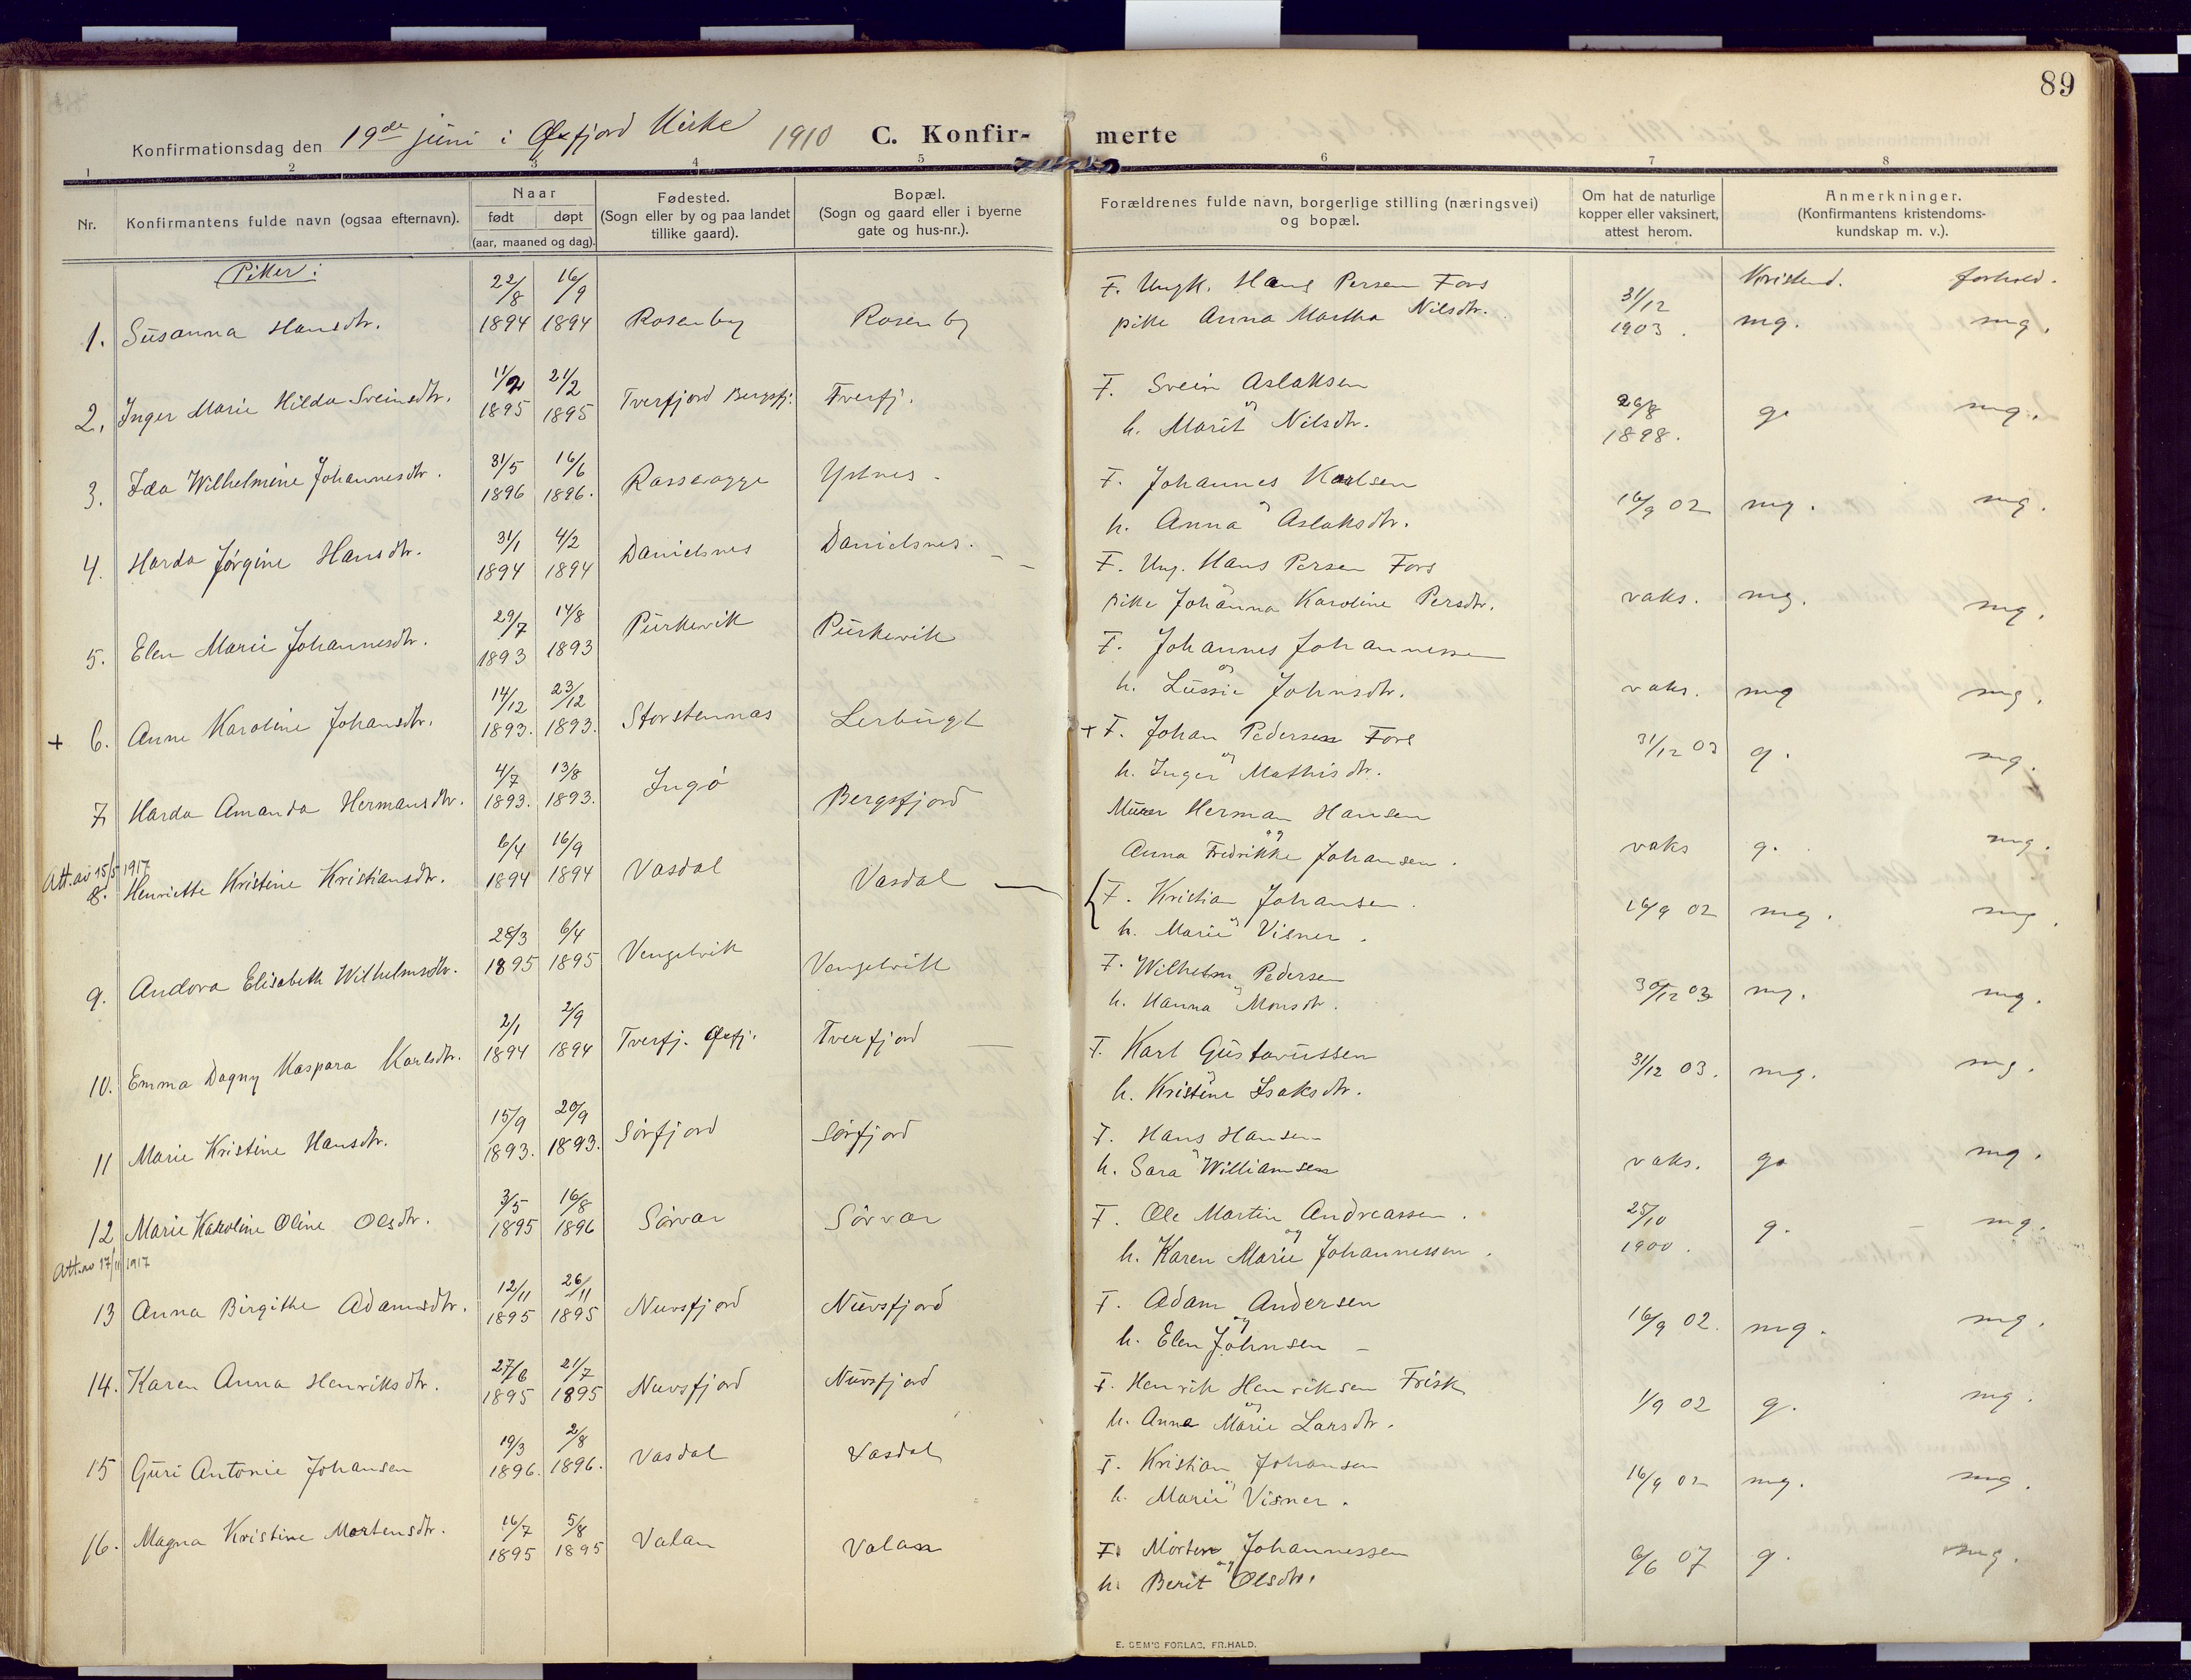 89
Konfirmationsdag den 19de juni i Øxfjord Kirke 1910 C. Konfir- merte
1 2 3 4 5 6 7 8
Nr.
Konfirmantens fulde navn (ogsaa efternavn).
Naar
født døpt
(aar, maaned og dag).
Fødested.
(Sogn eller by og paa landet
tillike gaard).
Bopæl.
(Sogn og gaard eller i byerne
gate og hus-nr.).
Forældrenes fulde navn, borgerlige stilling (næringsvei)
og bopæl.
Om hat de naturlige
kopper eller vaksinert,
attest herom.
Anmerkninger.
(Konfirmantens kristendoms-
kundskap m. v.).
Piker:
Kristend. forhold.
22/8 16/9 F. Ungk. Hans Persen Fors 31/12
1. Susanna Hansdtr. 1894 1894 Rosenby Rosenby pike Anna Martha Nilsdtr. 1903. mg. mg.
11/2 21/2 F. Svein Aslaksen 26/8
2. Inger Marie Hilda Sveinsdtr. 1895 1895 Tverfjord Bergsfj. Tverfj. og h. Marit Nilsdtr. 1898. g. mg.
31/5 16/6 F. Johannes Karlsen
3. Ida Wilhelmine Johannesdtr. 1896 1896. Ystnes. h. Anna Aslaksdtr. 16/9 02 mg. mg.
31/1 4/2 F. Ung. Hans Persen Fors
4. Harda Jørgine Hansdtr. 1894 1894 Danielsnes Danielsnes. pike Johanna Karoline Persdtr. vaks. mg. mg.
29/7 14/8 F. Johannes Johannessen
5. Elen Marie Johannesdtr. 1893 1893 Purkevik Purkevik og h. Lussie Johnsdtr. vaks. mg mg.
14/12 23/12 + F. Johan Pedersen Fors
+ 6. Anne Karoline Johansdtr. 1893. 1893. Storstennas Lerbugt og h. Inger Mathisdtr. 31/12 03 g. mg.
4/7 13/8 Murer Herman Hansen
7. Harda Amanda Hermansdtr. 1893. 1893. Ingø Bergsfjord og Anna Fredrikke Johansen. vaks g. mg.
Att. av 15/5 1917
6/4 16/9 F. Kristian Johansen.
8. Henriette Kristine Kristiansdtr. 1894 1894 Vasdal Vasdal og h. Marie Visner. 16/9 02 mg. mg.
28/3 6/4 F. Wilhelm Pedersen
9. Andora Elisabeth Wilhelmsdtr. 1895 1895 Vengelvik Vengelvik h. Hanna Monsdtr. 30/12 03 mg. mg.
2/1 2/9 F. Karl Gustavussen
10. Emma Dagny Kaspara Karlsdtr. 1894 1894 Tverfj. Øxfj. Tverfjord h. Kristine Isaksdtr. 31/12 03. mg. mg.
15/9 20/9 F. Hans Hansen
11 Marie Kristine Hansdtr. 1893. 1893. Sörfjord Sörfjord h. Sara Williamsen vaks. g. mg.
3/5 16/8 F. Ole Martin Andreassen. 25/10
12 Marie Karoline Oline Olsdtr. 1895 1896 Sörvar Sörvar og h. Karen Marie Johannessen. 1900. g. mg.
Att. av 17/11 1917
12/11 26/11 F. Adam Andersen
13 Anna Birgithe Adamsdtr. 1895 1895 Nuvsfjord Nuvsfjord og h. Elen Johnsen 16/9 02. mg. mg.
27/6 21/7 F. Henrik Henriksen Frisk
14. Karen Anna Henriksdtr. 1895 1895 Nuvsfjord Nuvsfjord og h. Anna Marie Larsdtr. 1/9 02 g. mg.
19/3 2/8 F. Kristian Johansen
15 Guri Antonie Johansen 1896. 1896. Vasdal Vasdal og h. Marie Visner. 16/9 02 mg. mg.
16/7 5/8 F. Morten Johannessen
16. Magna Kristine Mortensdtr. 1895 1895 Valan Valan og h. Berit Olsdtr. 6/6 07 g. mg.
E. SEM'S FORLAG, FR.HALD.